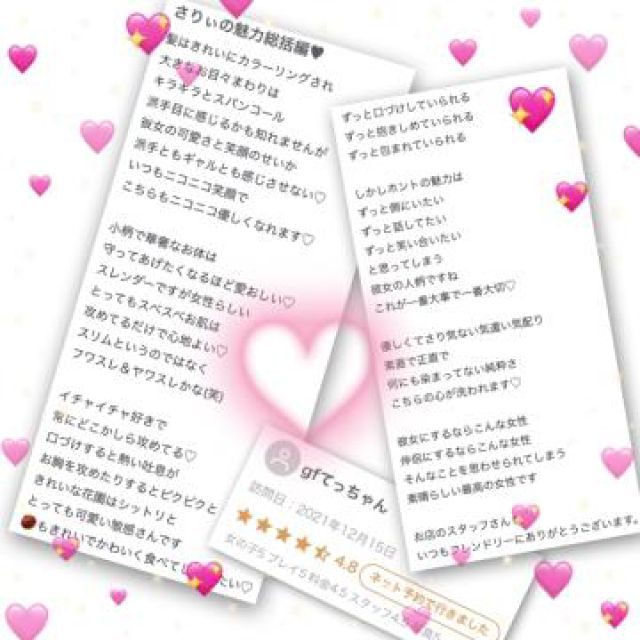 さりぃの魅力総括編♥
髪はきれいにカラーリングされ
大きなお目々まわりは
キラキラとスパンコール
派手目に感じるかも知れませんが
彼女の可愛さと笑顔のせいか
派手ともギャルとも感じさせない♡
いつもニコニコ笑顔で
こちらもニコニコ優しくなれます♡
小柄で華奢なお体は
守ってあげたくなるほど愛おしい♡
スレンダーですが女性らしい
とってもスベスベお肌は
攻めてるだけで心地よい♡
スリムというのではなく
フワスレ&ヤワスレかな(笑)
イチャイチャ好きで
常にどこかしら攻めてる♡
口づけすると熱い吐息が
お胸を攻めたりするとピクピクと
きれいな花園はシットリと
とっても可愛い敏感さんです
もきれいでかわいく食べて
たい♡
ずっと口づけしていられる
ずっと抱きしめていられる
ずっと包まれていられる
しかしホントの魅力は
ずっと側にいたい
ずっと話してたい
ずっと笑い合いたい
と思ってしまう
彼女の人柄ですね
これが一番大事で一番大切♡
優しくてさり気ない気遣い気配り
素直で正直で
何にも染まってない純粋さ
こちらの心が洗われます♡
彼女にするならこんな女性
伴侶にするならこんな女性
そんなことを思わせられてしまう
素晴らしい最高の女性です
お店のスタッフさん
いつもフレンドリーにありがとうございます。
gfてっちゃん
訪問日:2021年12月15日
4.8
ネット予約で行きました
女の子5 プレイ5 料金4.5 スタッフ4
5